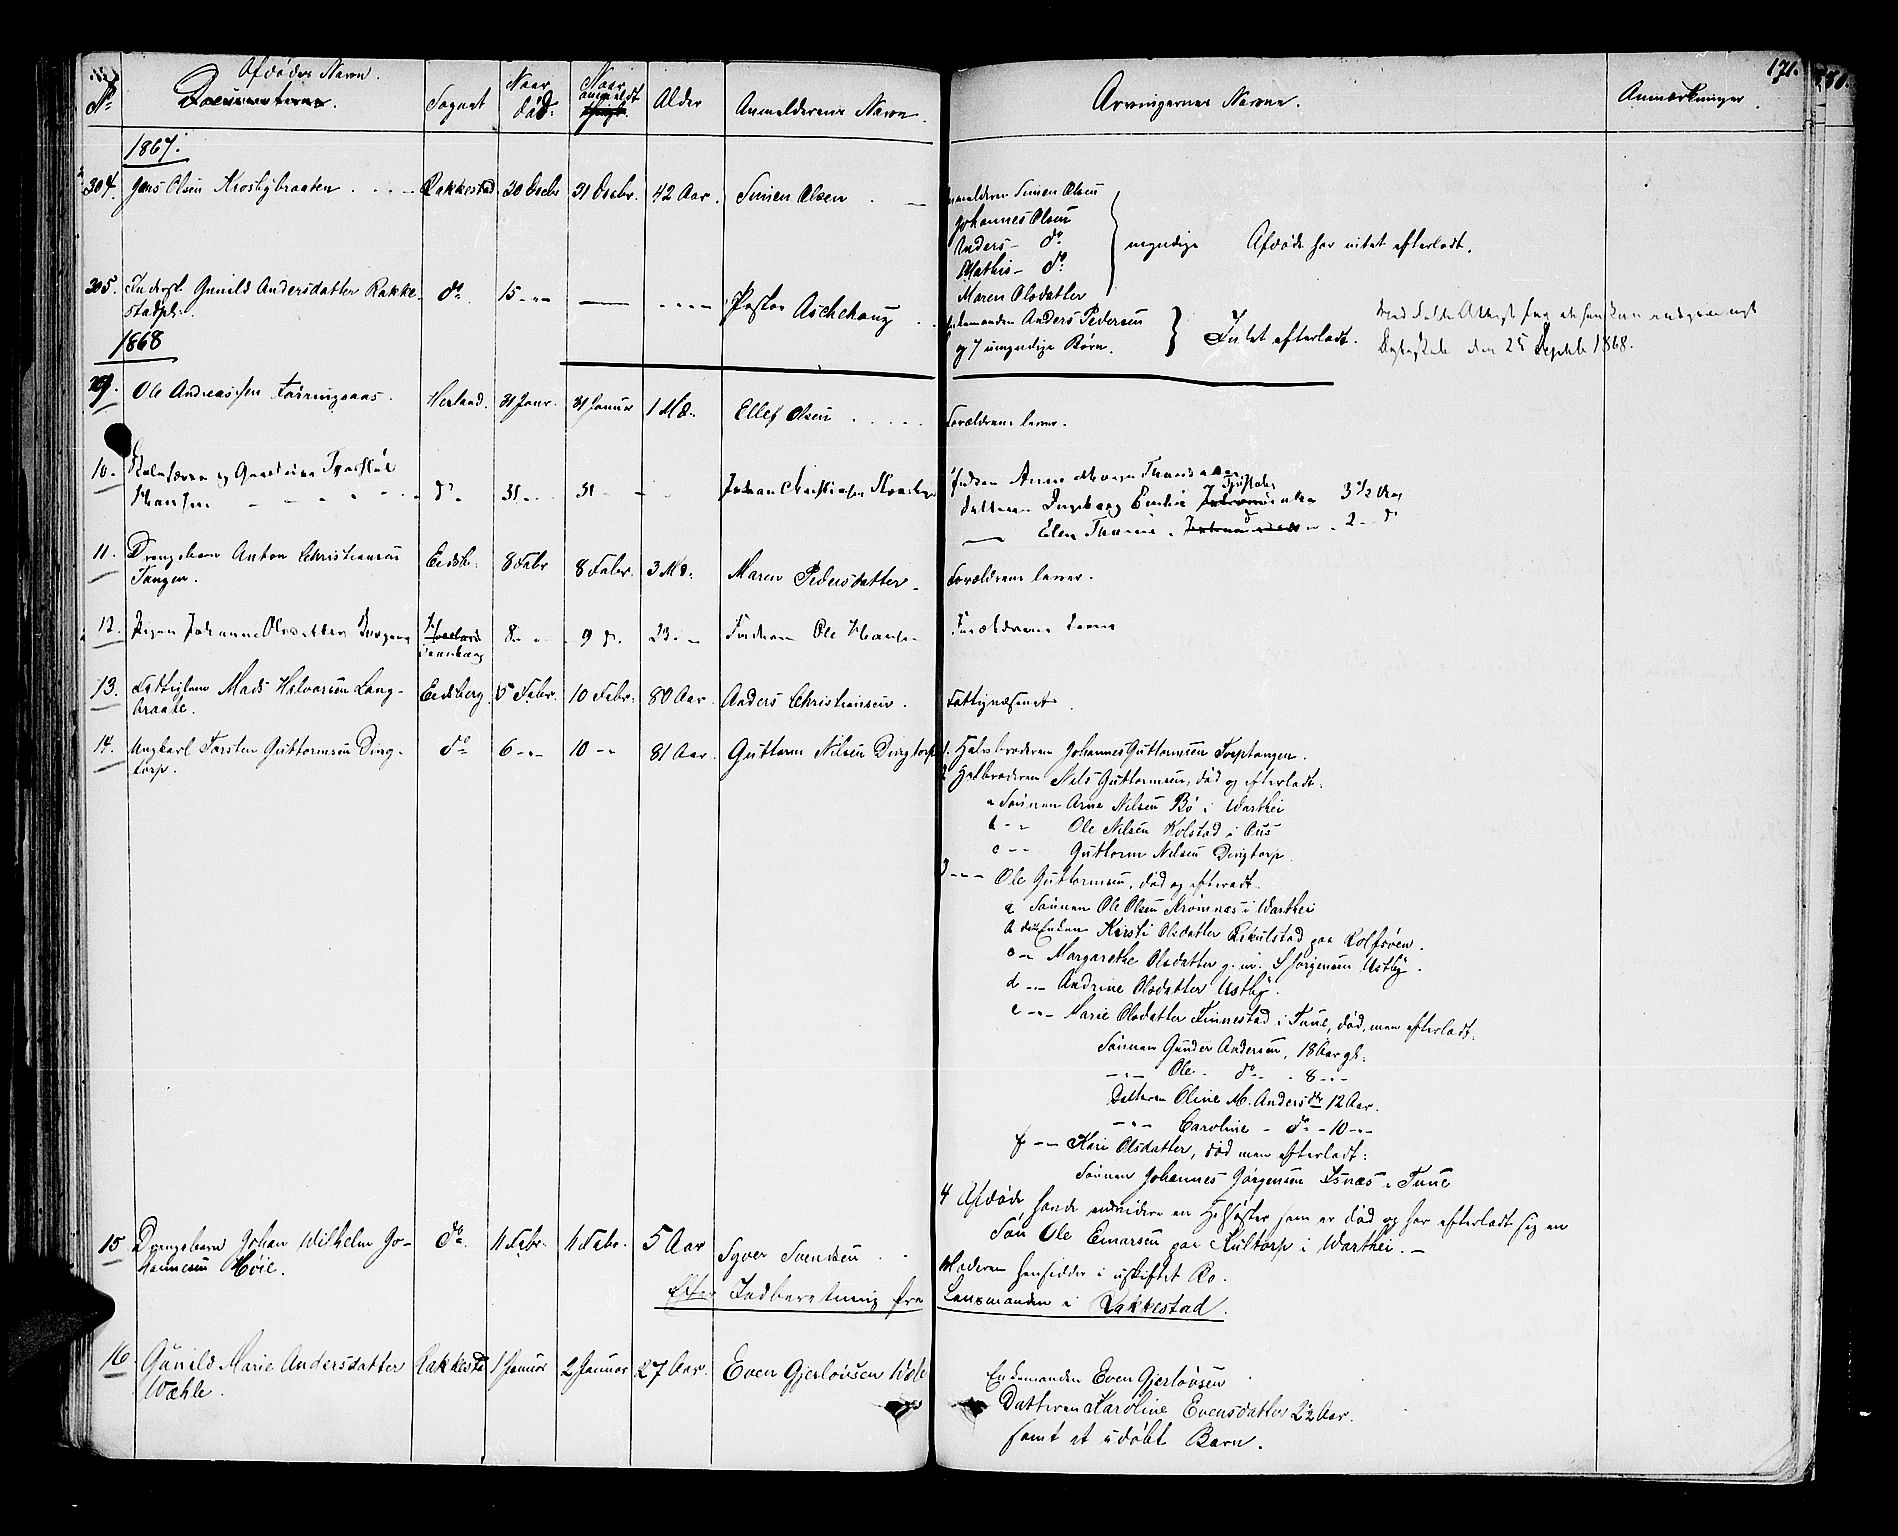 171.
No
Afdødes Navn.
Documenterne.
Sognet
Naar død.
Naar anmeldt
Alder
Anmelderens Navn.
Arvingernes Navne.
Anmærkninger
1867.
304. Jens Olsen Krosbybraaten Rakkestad 30 Decbr 31 Decbr. 42 Aar. Simen Olsen
Anmelderen Simen Olsen
Johannes Olsen
Anders - do
Mathis - do
myndige Afdøde har intet efterladt.
Maren Olsdatter
305. Gunild Andersdatter Rakke-
stadpl. do 15 Pastor Aschehoug
Enkemanden Anders Pedersen
og 7 umyndige Børn.
Intet efterladt.
den 25 Septb 1868.
1868
9. Ole Andreassen Harland. 31 Janr. 31 Januar 1 Md. Ellef Olsen
Forældrene lever.
10. og
Hansen do 31 31 Johan Christiansen
Enken Anne
Datteren Ingeborg Emilie 3 1/2 Aar
Elen 2 - do
11. Drengebarn Anton Christiansen
Tangen. Eidsb. 8 Febr 8 Febr. 3 Md. Maren Pedersdatter
Forældrene lever.
12. Pigen Johanne Olsdatter 8 9 do 23 Faderen Ole Hansen
Forældrene lever
13. Fattiglem Mads Halvorsen Lang-
braate. Eidsberg. 5 Febr. 10 Febr. 80 Aar. Anders Christiansen.
Fattigvæsenet
14. Ungkarl Torsten Guttormsen Ding-
torp. do 6 10 81 Aar. Guttorm Nilsen Dingtorp
1. Halvbroderen Johannes Guttormsen Torptangen.
2 Halbroderen Nils Guttormsen, død og efterladt:
a Sønnen Arne Nilsen Bø i Warthei
b - " Ole Nilsen Kolstad i Aus
c - " Guttorm Nilsen Dingtorp.
3 - " - Ole Guttormsen, død og efterladt.
a Sønnen Ole Olsen Strømnes i Warthei
b Enken Kirsti Olsdatter Rikulstad paa Rolfsøen.
c - Margarethe Olsdatter g. m. S Jørgensen Ustby.
d - " - Andrine Olsdatter Ustby.
e - " - Marie Olsdatter Finnestad i Tune, død, men efterladt:
Sønnen Gunder Andersen, 18 Aar gl.
- " - Ole - do - 8 - " -
Datteren Oline M. Andersdr 12 Aar.
- " - Caroline - do - 10 - " -
f - " - Kari Olsdatter, død men efterladt:
Sønnen Johannes Jørgensen i Tune
4 Afdøde havde endvidere en Helsøster som er død og har efterladt sig en
Søn Ole Einarsen paa Kultorp i Warthei. -
15 Drengebarn Johan Wilhelm Jo-
hannesen Høie. do 11 Febr. 11 Febr. 5 Aar Syver Svendsen
Moderen hensidder i uskiftet Bo.
Efter Indberetning fra Lensmanden i Rakkestad.
16. Gunild Marie Andersdatter
Wæhle. Rakkesta 1 Januar 2 Januar 27 Aar. Even Gjerløvsen
Enkemanden Even Gjerløvsen
Datteren Karoline Evensdatter 2 1/2 Aar.
samt et udøbt Barn.